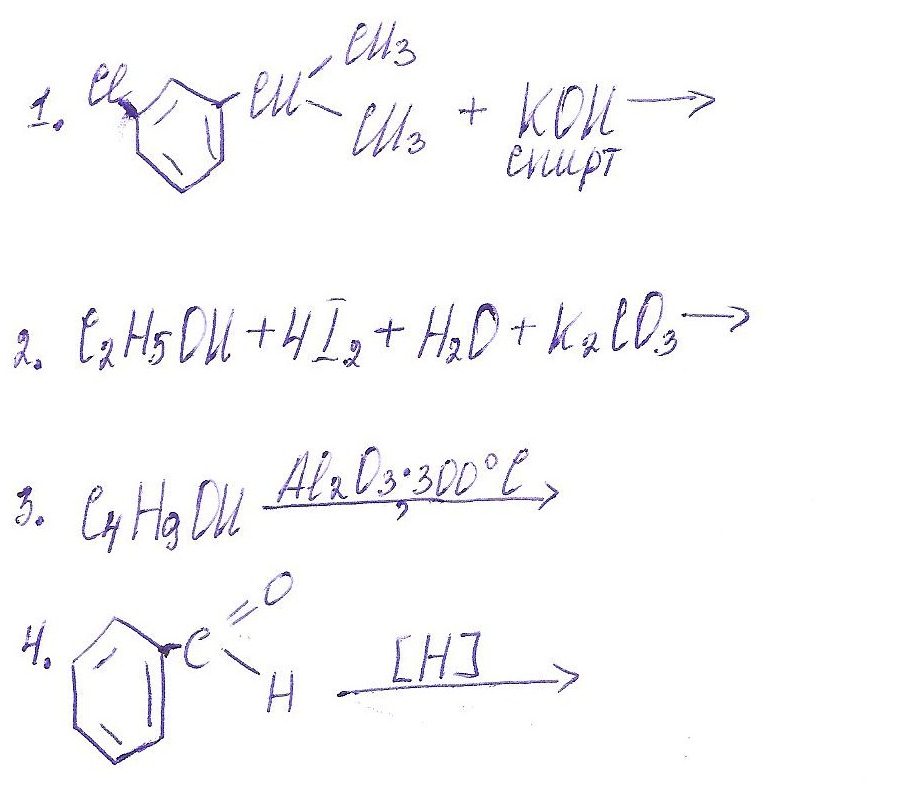 1. Cl CH CH3 CH3 + KOH →
спирт
2. C2H5OH + 4I2 + H2O + K2CO3 →
3. C4H9OH Al2O3, 300°C →
4. C O H [H] →